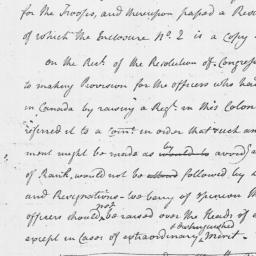 for the Troops, and thereupon passed a Reso
of which the Enclosure No. 2 is a Copy
On the Rect. of the Resolution of Congress
to making Provision for the officers who had
in Canada by raising a Regt. in this Colon
referred it to a Comt. in order that such an
ment might be made as by would to avoid
of Rank, would not be followed by a
and Resignations – we being of opinion th
officers should not be raised over the Heads of
except in Cases of extraordinary distinguished Merit.